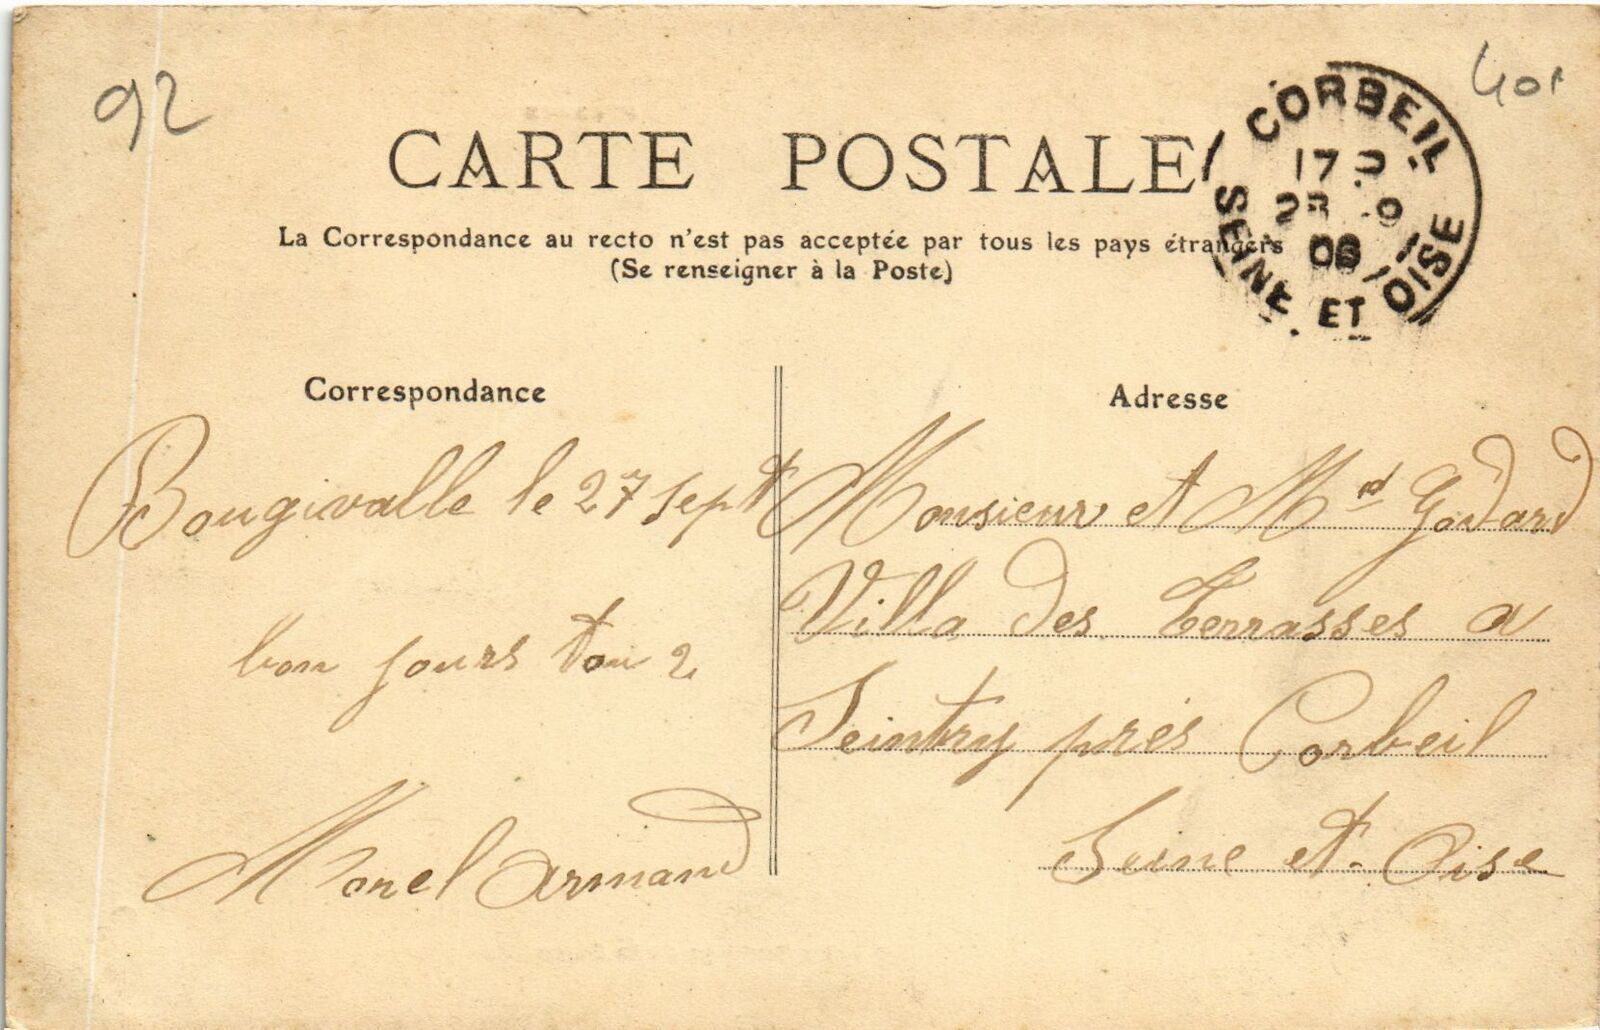 92
CARTE POSTALE
La Correspondance au recto n'est pas acceptée par tous les pays étrangers
(Se renseigner à la Poste)
CORBEIL
17
06
SEINE ET OISE
Correspondance
Bougivalle le 27 sept
bon jours tou 2
Morel Armand
Adresse
Monsieur et Md Godard
Villa des Terrasses a
Seintry près Corbeil
Seine et Oise